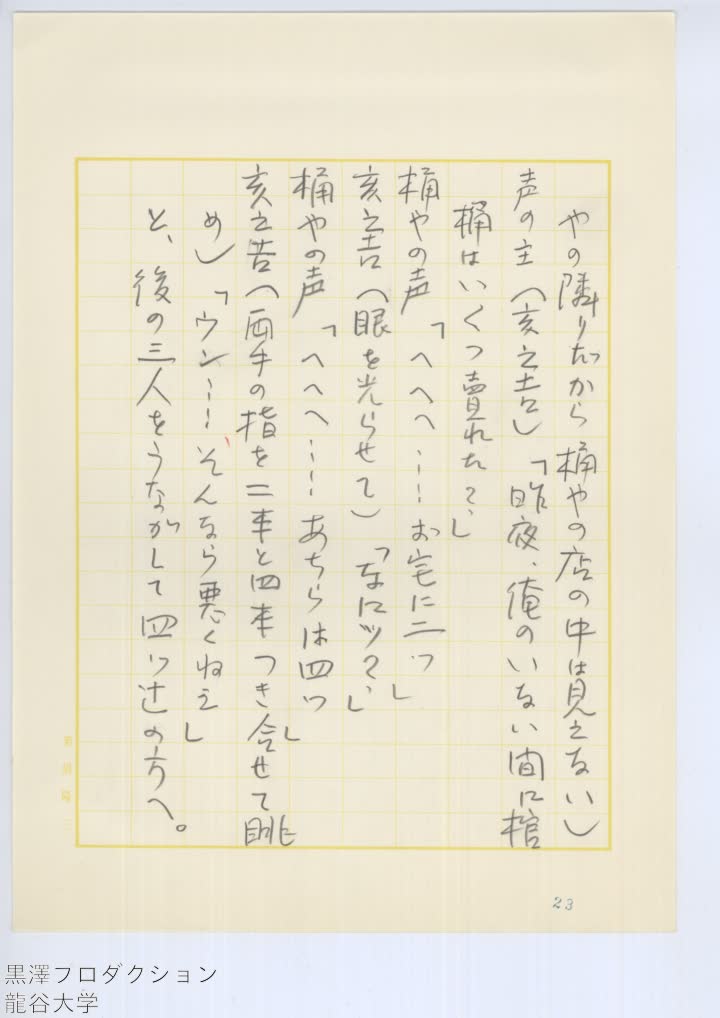 やの隣りだから桶やの店の中は見えない)
声の主(亥之吉)「昨夜、俺のいない間に棺
桶はいくつ売れた?」
桶やの声「へへへ……お宅に二つ」
亥之吉(眼を光らせて)「なにッ?」
桶やの声「へへへ……あちらは四つ」
亥之吉(両手の指を二本と四本つき合せて眺
め)「ウン……そんなら悪くねえ」
と、後の三人をうながして四つ辻の方へ。
23
黒澤プロダクション
龍谷大学